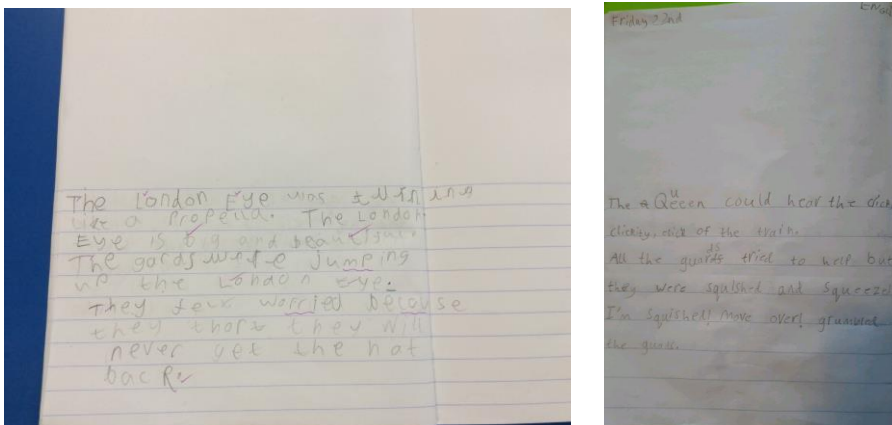 The London Eye was turning
like a propella. The London
Eye is big and beautiful.
The gards were jumping
up the London Eye.
They feur worried because
they thort they will
never get the hat
back.
Friday 22nd
The Queen could hear the click
clickity, click of the train.
All the guards tried to help but
they were squished and squeezed
I'm squished! move over! grumbled
the guards.